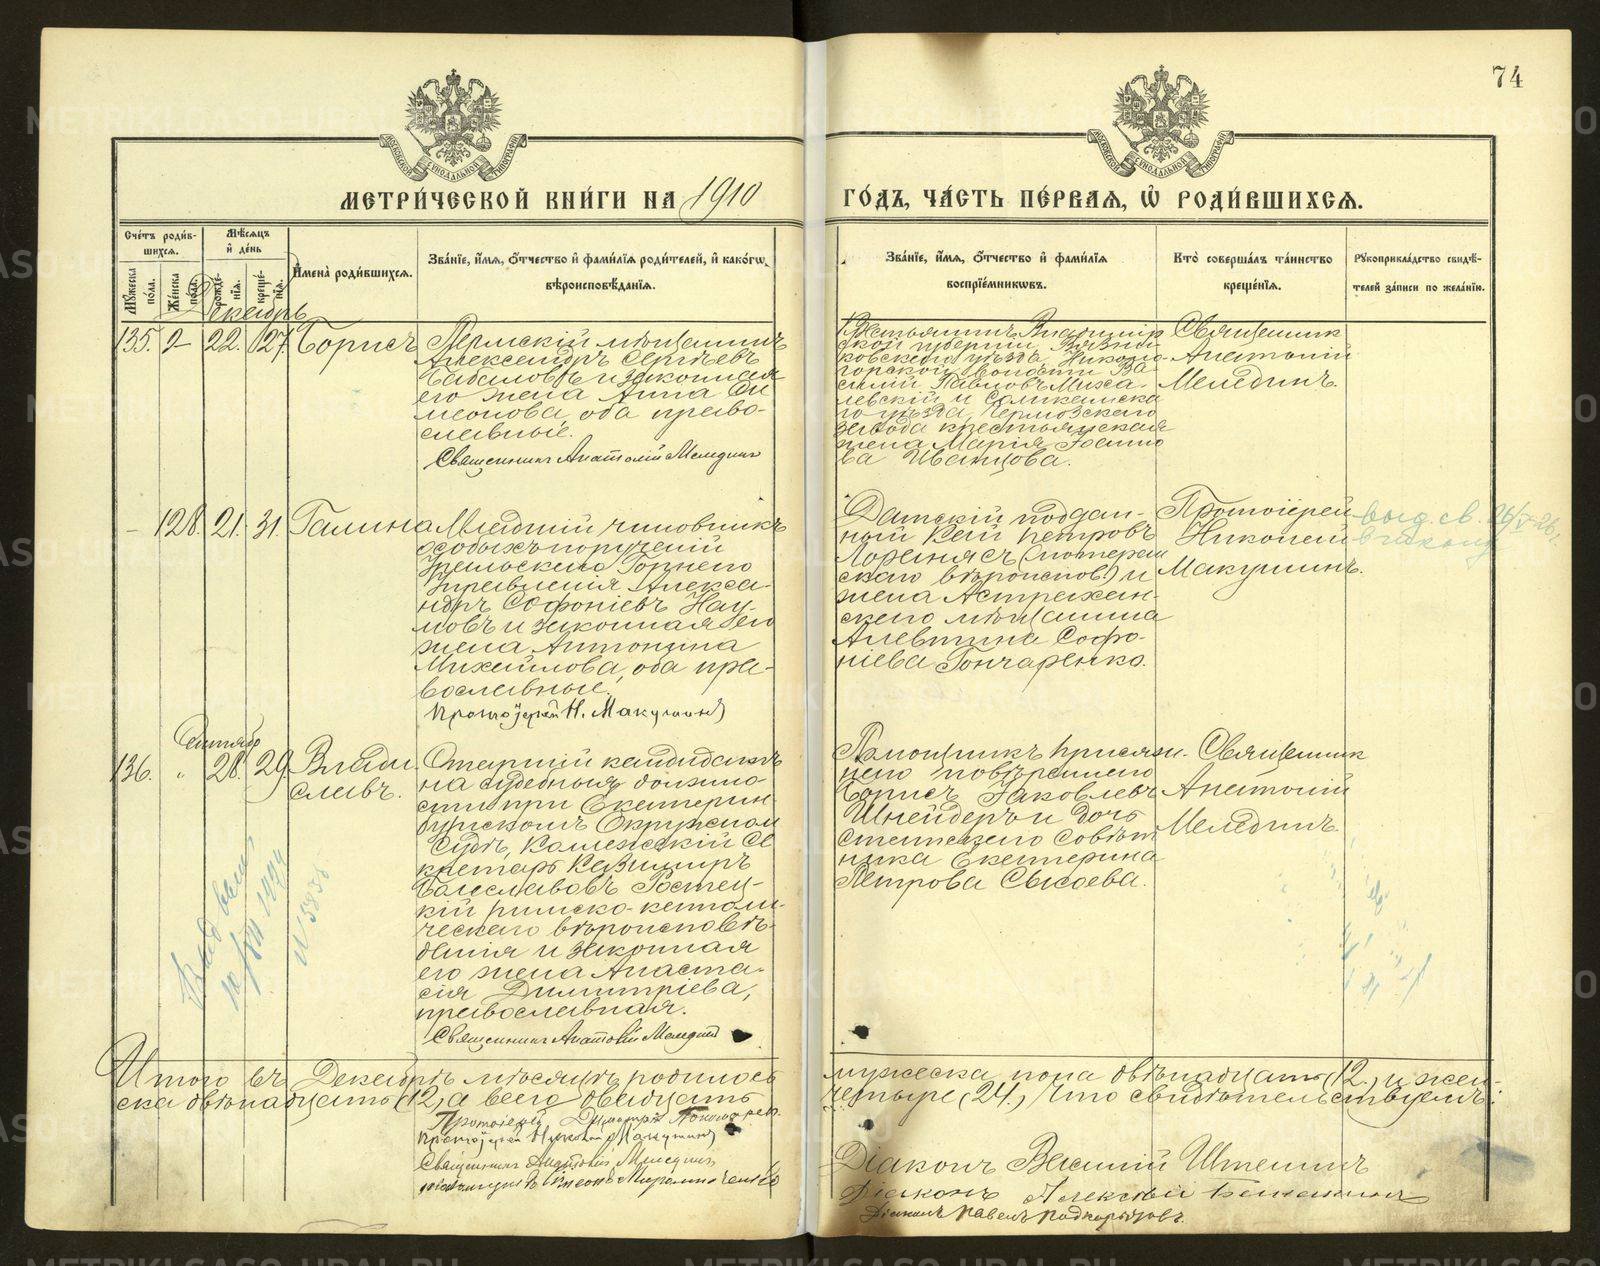 74
МОСКОВСКОЙ СѴНОДАЛЬНОЙ ТИПОГРАФІИ
МОСКОВСКОЙ СѴНОДАЛЬНОЙ ТИПОГРАФІИ
МЕТРИ́ЧЕСКОЙ КНИ́ГИ НА 1910
ГО́ДЪ, ЧА́СТЬ ПЕ́РВАѦ, Ѽ РОДИ́ВШИХСѦ.
Сче́тъ роди́в-
шихсѧ.
Мꙋ́жеска
по́ла.
Же́нска
по́ла.
Мѣ́сѧцъ
и҆ де́нь
рожде-
нїѧ.
креще́-
нїѧ.
И҆мена̀ роди́вшихсѧ.
Зва́нїе, и҆́мѧ, ѻ҆́тчество и҆ фами́лїѧ роди́телей, и҆ како́гѡ
вѣроисповѣ́данїѧ.
Зва́нїе, и҆́мѧ, ѻ҆́тчество и҆ фами́лїѧ
воспрїе́мникѡвъ.
Кто̀ соверша́лъ та́инство
креще́нїѧ.
Рꙋкоприкла́дство свидѣ́-
телей за́писи по жела́нїю.
Декабрь
135. 22. 27. Борисъ
Пермскій мѣщанинъ
Александръ Сергѣевъ
Бабаловъ и законная
его жена Анна Си
меонова, оба право-
славные.
Священникъ Анатолій Мелединъ
Крестьянинъ Владимір
ской губерніи, Вязни
ковскаго уѣзда, Николо
горской волости Ва
силій Павловъ Миха-
левскій и Соликамска
го уѣзда, Чермозскаго
завода крестьянская
жена Марія Іоанно
ва Иванцова.
Священникъ
Анатолій
Мелединъ.
128. 21. 31. Галина
Младшій чиновникъ
особыхъ порученій
Уральскаго Горнаго
Управленія Алекса-
ндръ Софоніевъ Нау-
мовъ и законная его
жена Антонина
Михайлова, оба пра-
вославные.
Протоіерей Н. Макушинъ
Датскій поддан-
ный Кай Петровъ
Лоранясъ (лютеран
скаго вѣроиспов.) и
жена Астрахан-
скаго мѣщанина
Алевтина Софо-
ніева Гончаренко.
Протоіерей
Николай
Макушинъ.
выд. св. 26/V-26 г.
Сентябр
136. " 28. 29. Влади
славъ.
Старшій кандидатъ
на судебныя должно
сти при Екатерин-
бургскомъ Окружномъ
Судѣ, Коллежскій Се
кретарь Казиміръ
Болеславовъ Ростец-
кій римско-католи-
ческаго вѣроисповѣ-
данія и законная
его жена Анаста-
сія Димитріева,
православная.
Священникъ Анатолій Меледин
Помощникъ присяж-
наго повѣреннаго
Борисъ Іаковлевъ
Шнейдеръ и дочь
статскаго совѣт
ника Екатерина
Петрова Сысоева.
Священник
Анатолій
Мелединъ.
Итого въ Декабрѣ мѣсяцѣ родилось
мужеска пола двѣнадцать (12.) и жен-
ска двѣнадцать (12), а всего двадцать
четыре (24.) Что свидѣтельствуемъ:
Протоіерей Николай Макушинъ
Священникъ Анатолій Меледин
Діаконъ Василій
Діаконъ Алексѣй
Діаконъ Павелъ Подкорытовъ.
METRIKI.GASO-URAL.RU